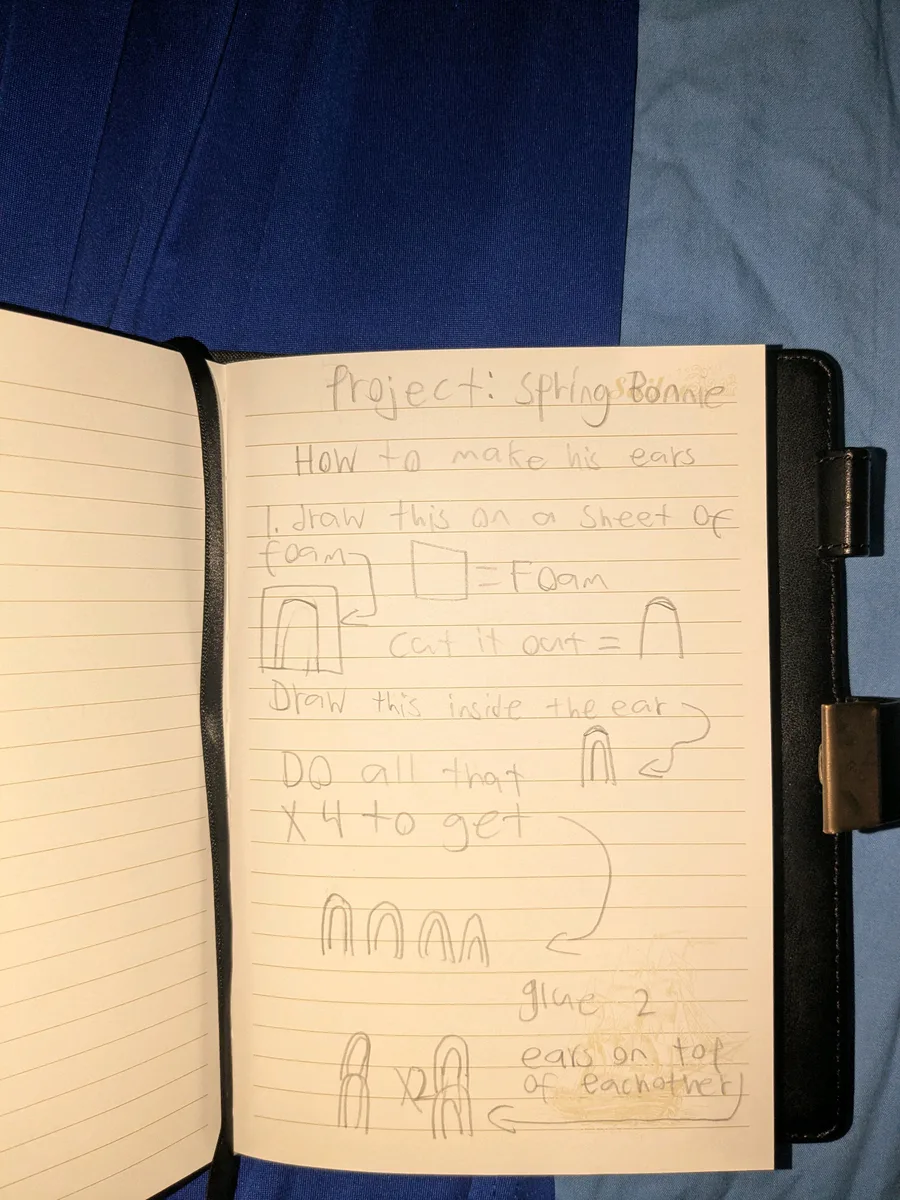 Project: Spring Bonnie
How to make his ears
1. draw this on a sheet of
foam
= Foam
cut it out =
Draw this inside the ear
DO all that
x 4 to get
glue 2
ears on top
x2
of eachother